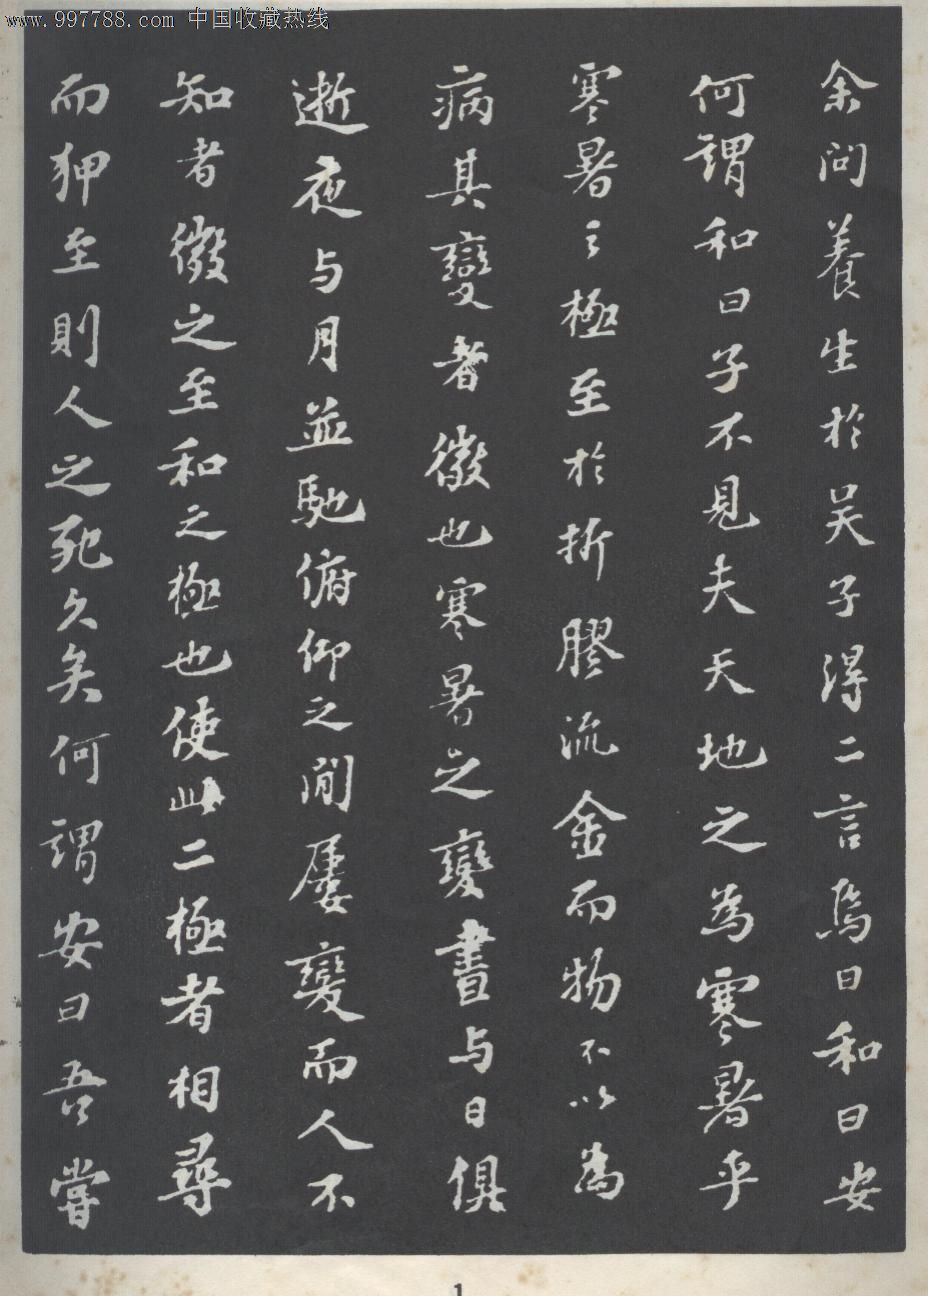 www.997788.com 中国收藏热线
余问養生於吴子得二言焉曰和曰安
何謂和曰子不見夫天地之為寒暑乎
寒暑之極至於折膠流金而物不以為
病其變者微也寒暑之變晝与日俱
逝夜与月並馳俯仰之間屢變而人不
知者微之至和之極也使此二極者相尋
而狎至則人之死久矣何謂安曰吾嘗
1